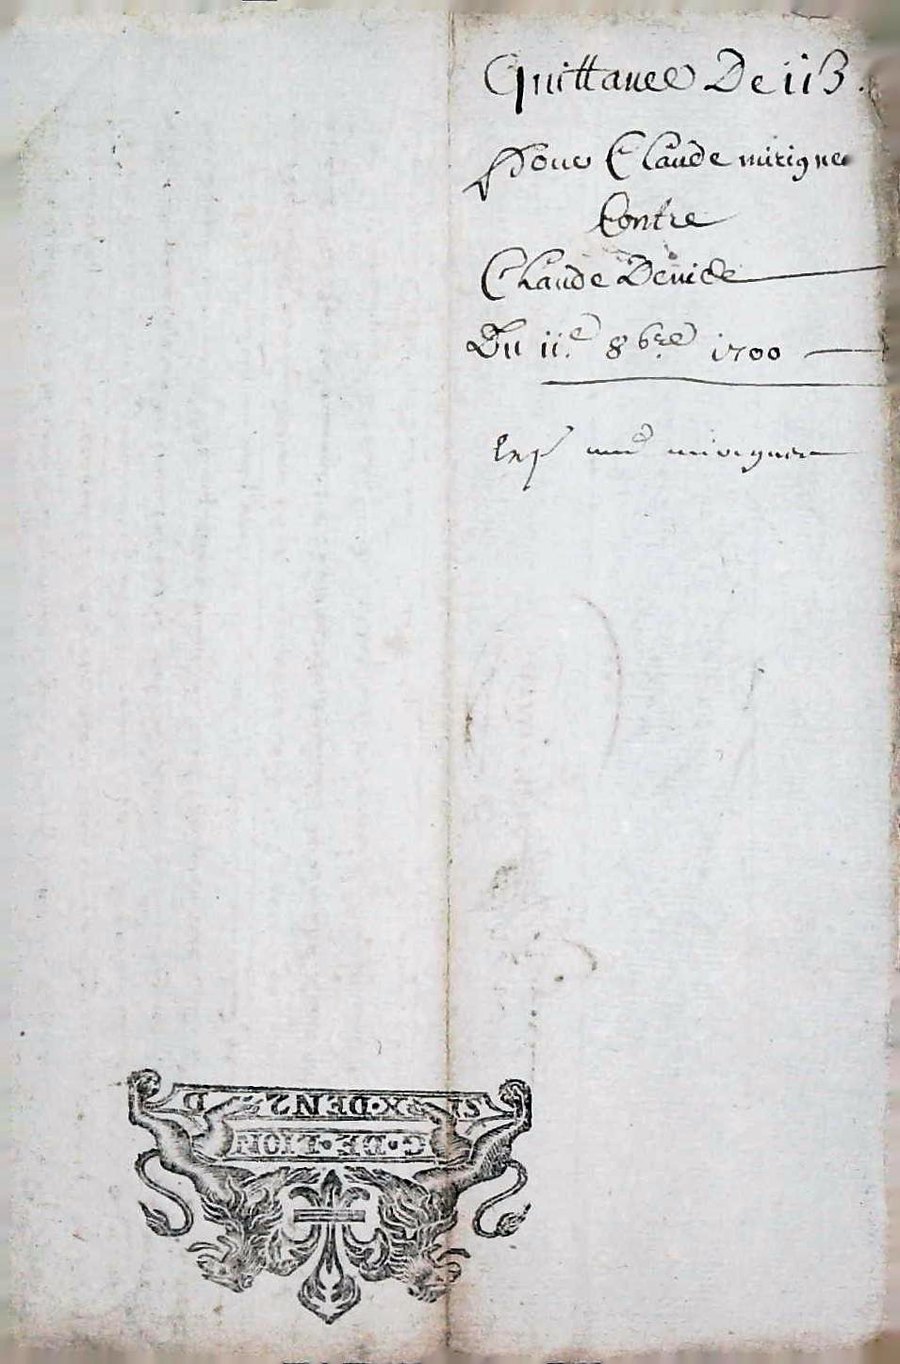 Quittance De ii₶.
Pour Claude mirigne
Contre
Claude Devide
Du ii.e 8bre 1700
mirigne
SIX·DEN
G·DE·LION